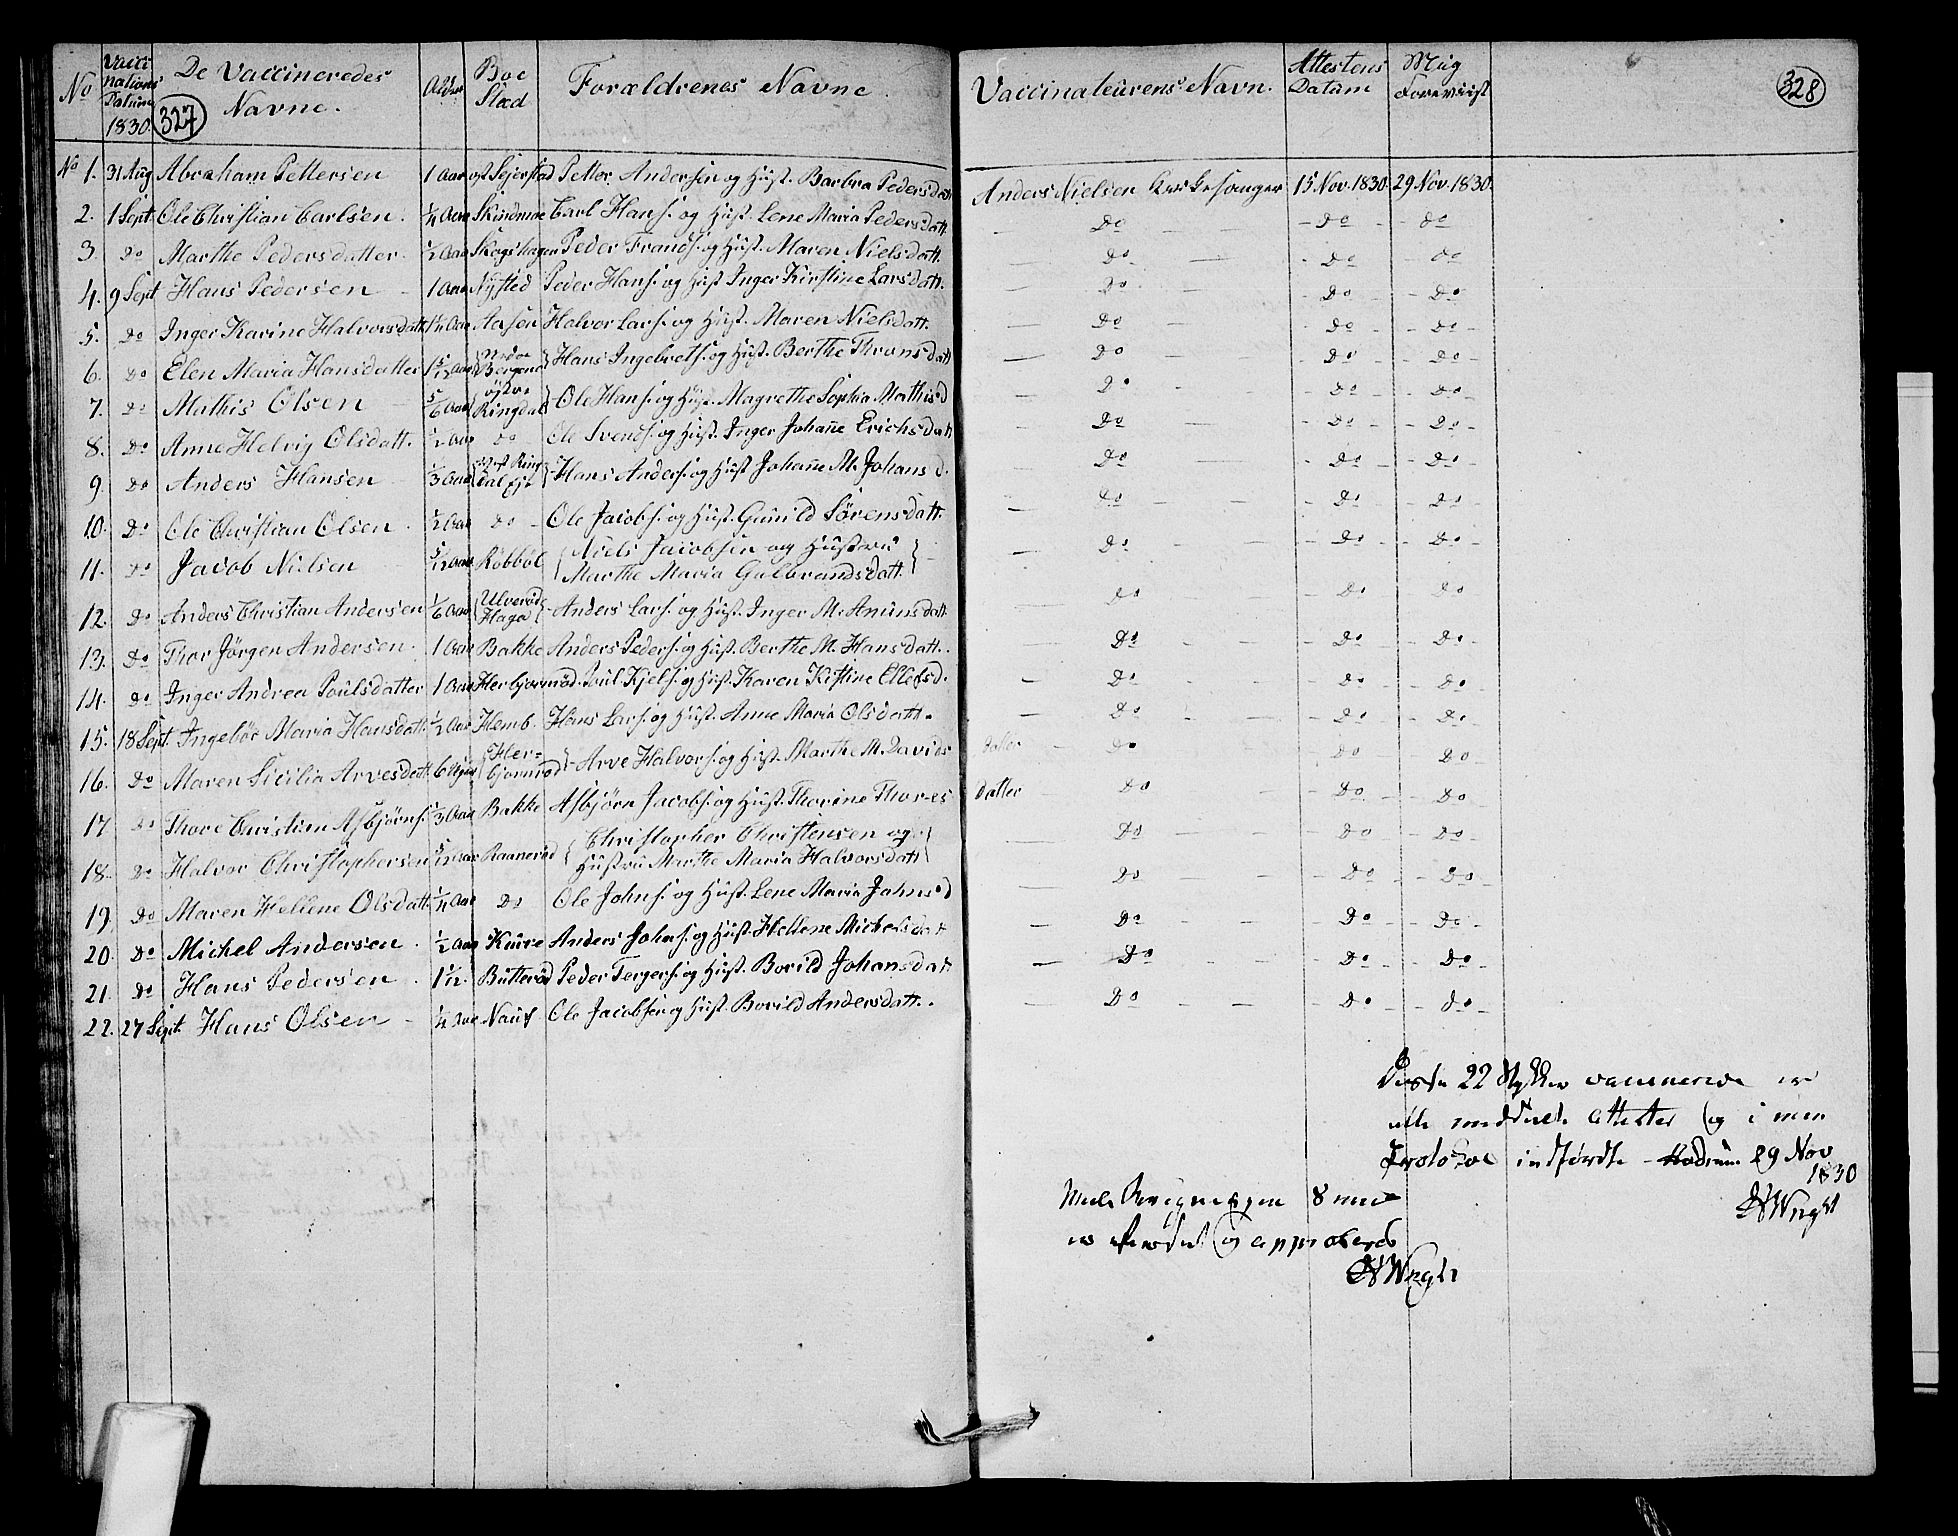 No Vacci nations Datum 1830. De Vaccineredes Navne. Alder Boe Stæd Forældrenes Navne. Vaccinateurens Navn. Attestens Datum Mig Foreviist
327
328
No 1. 31 Aug Abraham Pettersen 1 Aar Sejerstad Petter Andersen og Hust. Barbra Pedersdatt Anders Nielsen Kirkesanger 15 Nov. 1830. 29 Nov. 1830.
2. 1 Sept. Ole Christian Carlsen. 1/4 Aar Carl Hans. og Hust. Lene Maria Pedersdatt. Do Do Do
3. Do Marthe Pedersdatter 1/2 Aar Skogshagen Peder Frands. og Hust. Maren Nielsdatt. Do Do Do
4. 9 Sept Hans Pedersen 1 Aar Nysted Peder Hans. og Hust Inger Kirstine Larsdatt. Do Do Do
5. Do Inger Karine Halvorsdatt. 1 1/2 Aar Aasen Halvor Lars. og Hust. Maren Nielsdatt. Do Do Do
6. Do Elen Maria Hansdatter 1 5/12 Aar Nedre Bergene Hans Ingebrets. og Hust. Berthe Thronsdatt Do Do Do
7. Do Mathis Olsen 5/6 Aar östre Ringdal Ole Hans. og Hust. Magrethe Sophia Mathisd Do Do Do
8. Do Anne Helvig Olsdatt. 1/2 Aar Do Ole Svends. og Hust. Inger Johane Erichsdatt Do Do Do
9. Do Anders Hansen 1/3 Aar Vest Ring dal Ejl Hans Anders. og Hust Johane M. Johansd. Do Do Do
10. Do Ole Christian Olsen 1/2 Aar Do Ole Jacobs. og Hust. Gunild Sörensdatt. Do Do Do
11. Do Jacob Nielsen 5/12 Aar Röbböl Niels Jacobsen og Hustru
Marthe Maria Gulbrandsdatt. Do Do Do
12. Do Anders Christian Andersen 1/6 Aar Ulveröds Haged Anders Lars. og Hust. Inger M. Amunsdatt Do Do Do
13. Do Thor Jörgen Andersen. 1 Aar Bakke Anders Peders. og Hust. Berthe M. Hansdatt. Do Do Do
14. Do Inger Andrea Poulsdatter 1 Aar Herbjornröd. Poul Kjels. og Hust. Karen Kistine Ellefsd. Do Do Do
15. 18 Sept. Ingebör Maria Hansdatt. 1/2 Aar Hemb. Hans Lars. og Hust. Anne Maria Olsdatt. Do Do Do
16. Do Maren Sicilia Arvesdatt. 6 Uger Her= bjornröd Arve Halvors. og Hust. Marthe M. Davids datter Do Do Do
17 Do Thore Christian Asbjörns. 1/3 Aar Bakke Asbjörn Jacobs. og Hust. Thorine Thores datter Do Do Do
18. Do Halvor Christophersen 5/12 Aar Raaneröd Christopher Christensen og
Hustru Marthe Maria Halvorsdatt Do Do Do
19. Do Maren Hellene Olsdatt. 1/4 Aar Do Ole Johns. og Hust. Lene Maria Johnsd Do Do Do
20. Do Michel Andersen. 1/2 Aar Knive Anders Johns. og Hust. Hellene Michelsdatt Do Do Do
21. Do Hans Pedersen. 1 1/12. Butteröd Peder Tergers. og Hust. Borild Johansdatt Do Do Do
22. 27 Sept. Hans Olsen 1/4 Aar Nauf Ole Jacobsen og Hust. Borild Andersdatt. Do Do Do
Disse 22 Stykker vaccinerede er
alle meddeelte Attester og i min
Protocol indförte Hedrum 29 Nov
1830
Wright
8
er og approberet
Wright